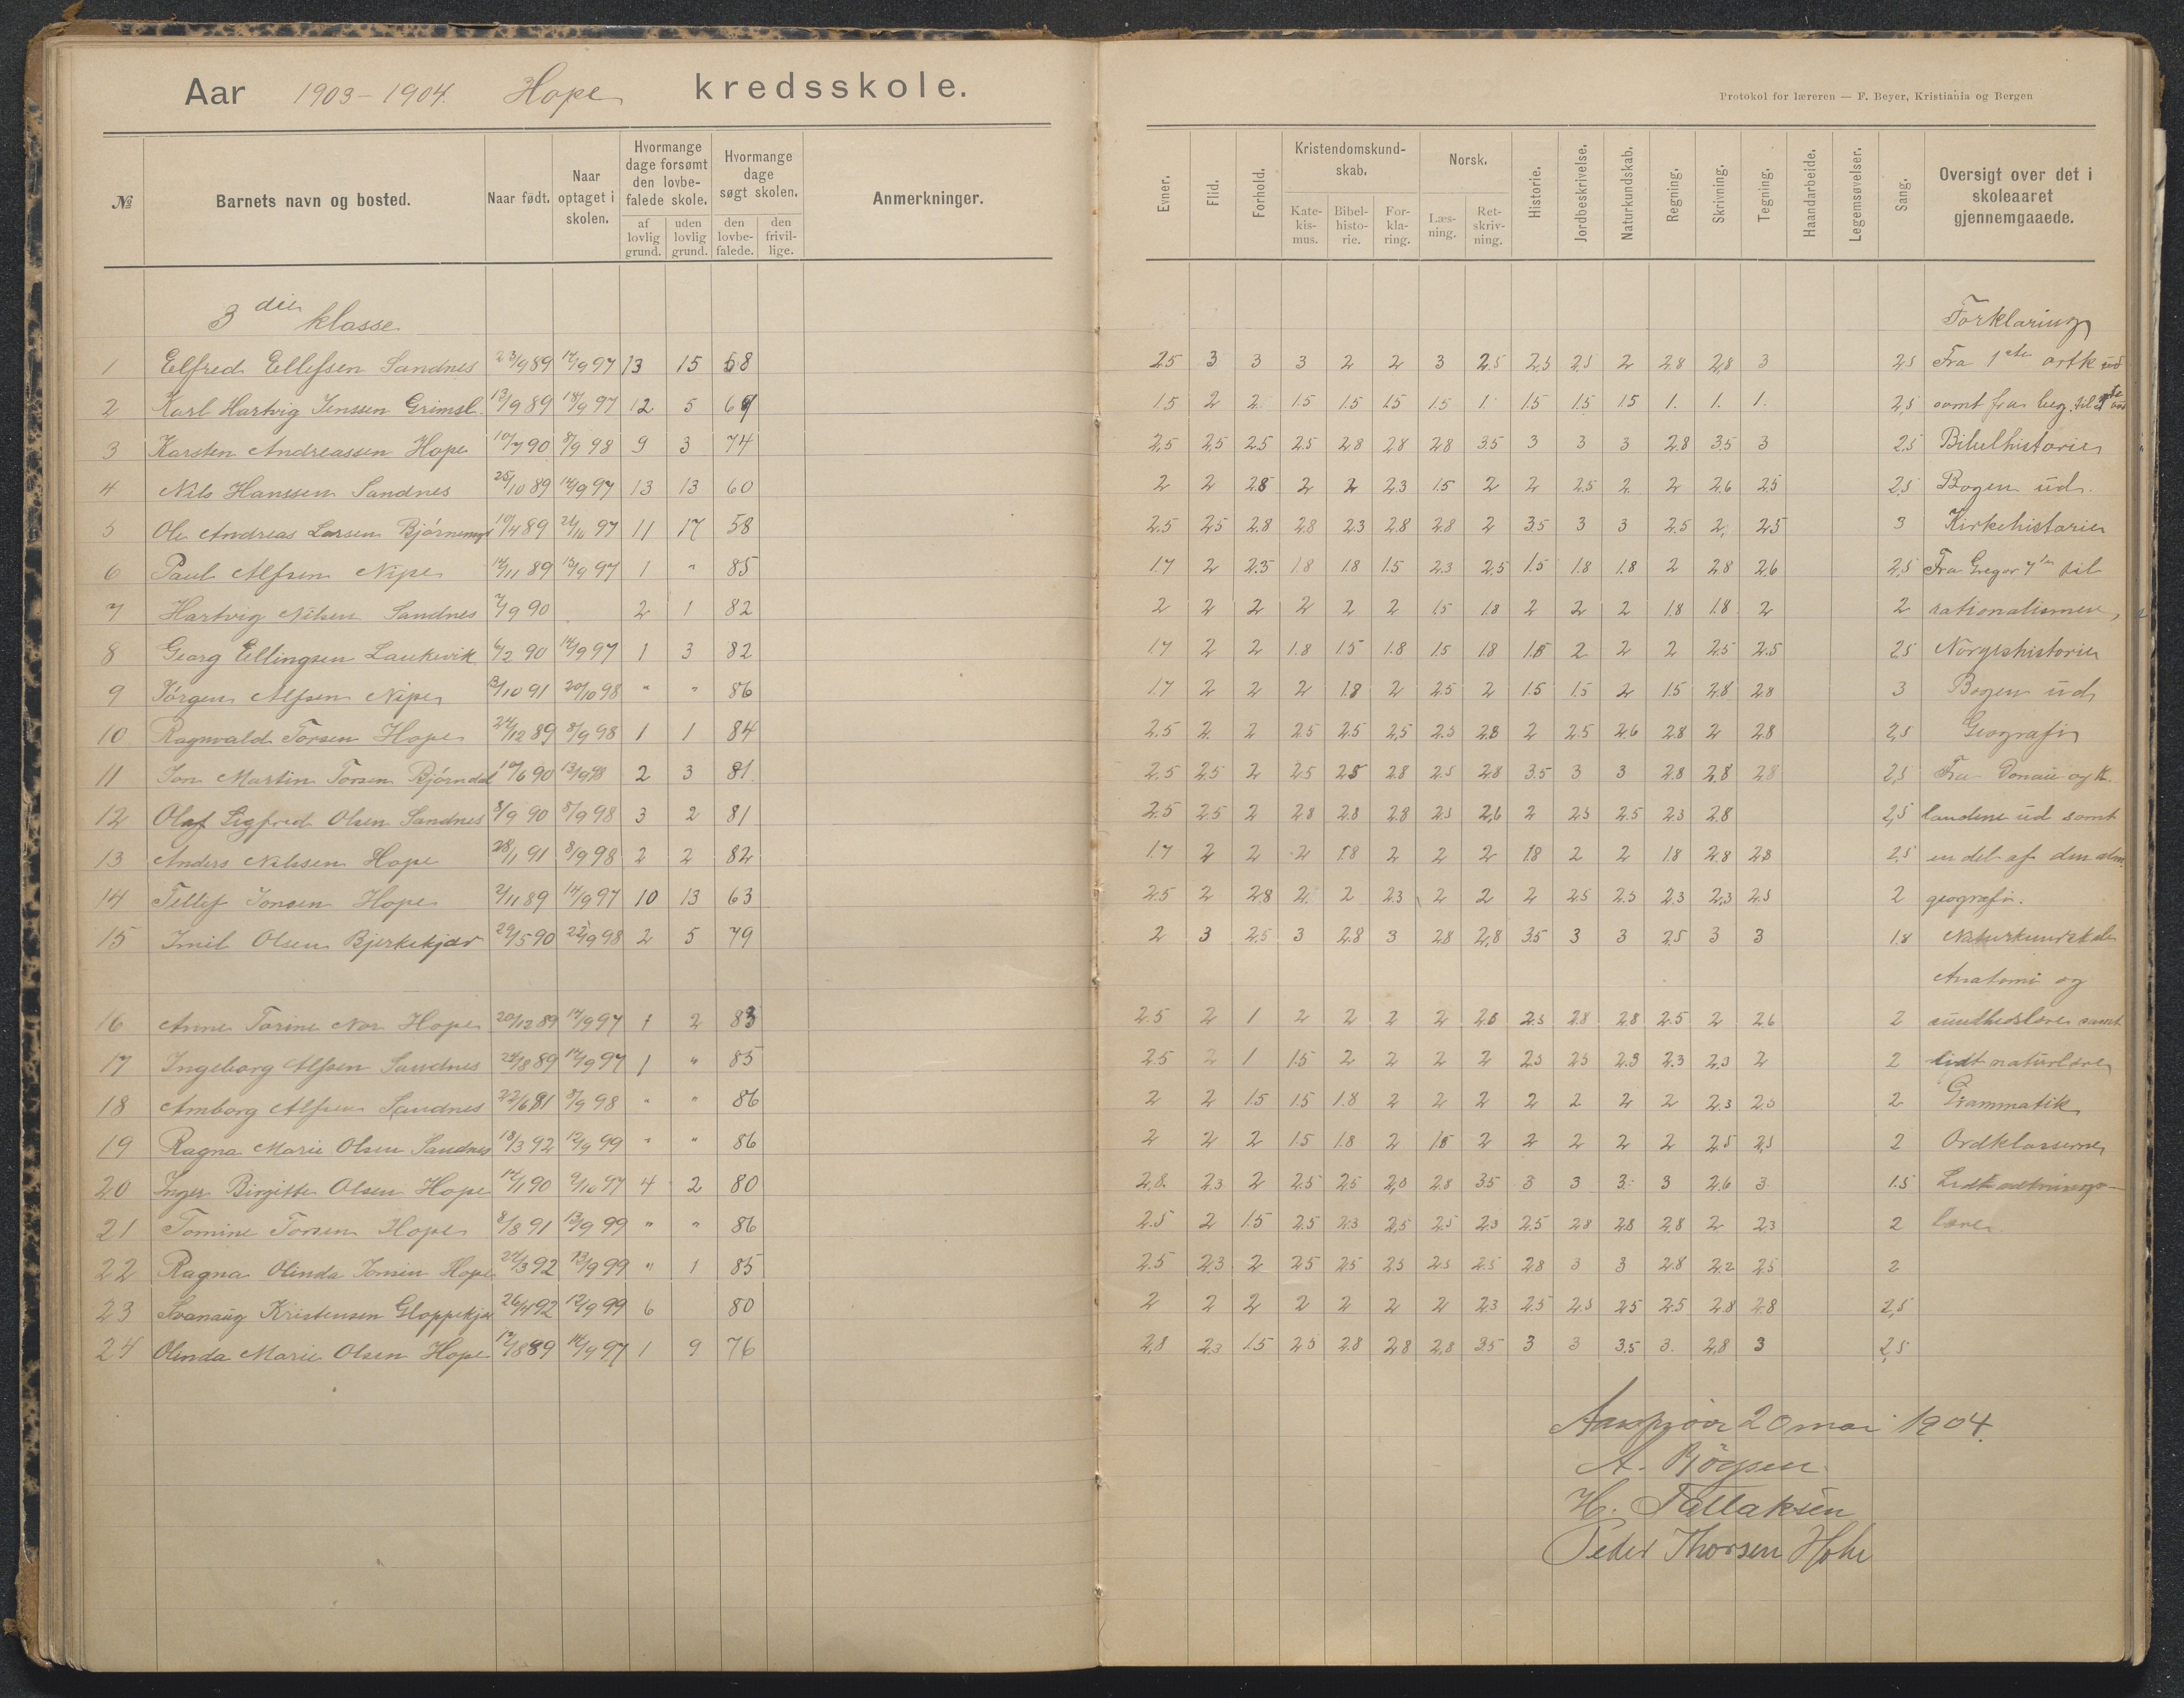 Aar 1903-1904. Hope kredsskole.
Protokol for læreren — F. Beyer, Kristiania og Bergen
№ Barnets navn og bosted. Naar født. Naar optaget i skolen. Hvormange dage forsømt den lovbefalede skole. af lovlig grund. uden lovlig grund. Hvormange dage søgt skolen. den lovbefalede. den frivillige. Anmerkninger.
Evner. Flid. Forhold. Kristendomskundskab. Katekismus. Bibelhistorie. Forklaring. Norsk. Læsning. Retskrivning. Historie. Jordbeskrivelse. Naturkundskab. Regning. Skrivning. Tegning. Haandarbeide. Legemsøvelser. Sang. Oversigt over det i skoleaaret gjennemgaaede.
3die klasse
Forklaring
1 Elfred Ellefsen Sandnes 23/9 89 14/9 97 13 15 58 2.5 3 3 3 2 2 3 2.5 2.5 2.5 2 2.8 2,8 3 2,5 Fra 1ste artk ud
2 Karl Hartvig Jenssen Grimsl. 13/9 89 18/9 97 12 5 69 1.5 2 2 1.5 1.5 1.5 1.5 1. 1.5 1.5 1.5 1. 1. 1. 2,5 samt fra beg. til
3 Karsten Andreassen Hope 10/7 90 8/9 98 9 3 74 2,5 2,5 2.5 2.5 2.8 2.8 2.8 3.5 3 3 3 2.8 3.5 3 2.5 Bibelhistorie
4 Nils Hanssen Sandnes 25/10 89 14/9 97 13 13 60 2 2 2.8 2 2 2.3 1.5 2 2 2.5 2 2 2.6 2.5 2,5 Bogen ud.
5 Ole Andreas Larsen Bjørnemyr 10/4 89 21/10 97 11 17 58 2.5 2.5 2.8 2.8 2.3 2.8 2.8 2 3.5 3 3 2.5 2, 2.5 3 Kirkehistorie
6 Paul Alfsen Nipe 14/11 89 13/9 97 1 " 85 1.7 2 2.5 1.8 1.8 1.5 2.3 2,5 1.5 1.8 1.8 2 2.8 2.6 2,5 Fra Gregor 7de til
7 Hartvig Nilsen Sandnes 7/9 90 2 1 82 2 2 2 2 2 2 1.5 1.8 2 2 2 1.8 1.8 2 2 rationalismen,
8 Georg Ellingsen Laukevik 6/2 90 14/9 97 1 3 82 1.7 2 2 1.8 1.5 1.8 1.5 1.8 1.5 2 2 2 2.5 2.5 2,5 Norgeshistorie
9 Jørgen Alfsen Nipe 3/10 91 20/10 98 " " 86 1.7 2 2 2 1.8 2 2.5 2 1.5 1.5 2 1.5 2.8 2.8 3 Bogen ud
10 Ragnvald Torsen Hope 24/12 89 8/9 98 1 1 84 2.5 2. 2 2.5 2.5 2,5 2.5 2.8 2 2.5 2.6 2.8 2 2.8 2,5 Geografi
11 Jon Martin Torsen Bjørndal 10/6 90 13/9 98 2 3 81. 2.5 2.5 2 2.5 2.5 2.8 2.5 2.8 3.5 3 3 2.8 2,8 2.8 2,5 Fra Donau og K.
12 Olaf Sigfred Olsen Sandnes 8/9 90 8/9 98 3 2 81 2.5 2.5 2 2.8 2.8 2.8 2.5 2,6 2 2.5 2.5 2.3 2.8 2,5 landene ud samt
13 Anders Nilssen Hope 28/1 91 8/9 98 2 2 82 1.7 2 2 2 1.8 2 2 2 1.8 2 2 1.8 2.8 2.8 2,5 en del af den alm.
14 Tellef Jonsen Hope 2/11 89 14/9 97 10 13 63 2.5 2 2.8 2. 2 2.3 2 2 2 2.5 2.5 2.3 2,3 2.5 2 geografi.
15 Imil Olsen Bjerkekjær 29/5 90 22/9 98 2 5 79 2 3 2,5 3 2.8 3 2.8 2,8 3.5 3 3 2.5 3 3 1.8 Naturkundskab
Anatomi og
16 Anne Torine Nor Hope 20/12 89 14/9 97 1 2 83 2.5 2 1 2 2 2 2 2.8 2.5 2.8 2.8 2.5 2 2.6 2 sundhedslære samt
17 Ingeborg Alfsen Sandnes 24/8 89 14/9 97 1 " 85 2.5 2 1 1.5 2 2 2 2 2.5 2.5 2.3 2.3 2,3 2 2 lidt naturlære
18 Amborg Alfsen Sandnes 22/6 91 8/9 98 " " 86 2 2 1.5 1.5 1.8 2 2 2 2 2 2 2 2.3 2.5 2 Grammatik
19 Ragna Marie Olsen Sandnes 18/3 92 12/9 99 " " 86 2 2 2 1.5 1.8 2 1.8 2 2 2 2 2 2.5 2,5 2 Ordklasserne
20 Inger Birgitte Olsen Hope 14/1 90 9/10 97 4 2 80 2,8. 2.3 2 2.5 2.5 2,8 2.8 3.5 3 3 3. 3 2.6 3 1.5 Lidt sætnings-
21 Tomine Torsen Hope 8/8 91 13/9 99 " " 86 2.5 2 1.5 2.5 2.3 2,5 2.5 2.3 2.5 2.8 2.8 2,8 2 2.3 2 lære
22 Ragna Olinda Jonsen Hope 24/3 92 13/9 99 " 1 85 2.5 2.3 2 2.5 2.5 2.5 2.5 2.5 2.8 3 3 2.8 2.2 2.5 2
23 Svanaug Kristensen Gloppekjær 26/4 92 12/9 99 6 80 2 2 2 2 2 2 2 2.3 2.5 2.5 2.5 2.5 2.8 2.8 2,5
24 Olinda Marie Olsen Hope 12/8 89 14/9 97 1 9 76 2,8 2.3 1.5 2.5 2.8 2.8 2,8 3.5 3 3 3.5 3. 2,8 3 2,5
20 mai 1904.
H. Tallaksen
Peder Thorsen Hope